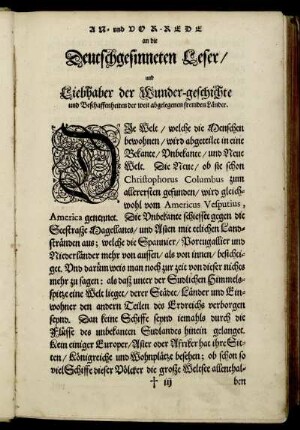 AN- und VOR-REDE
an die
Deutschgesinneten Leser/
und
Liebhaber der Wunder-geschichte
und Beschaffenheiten der weit abgelegenen fremden Länder.
DJe Welt / welche die Menschen
bewohnen / wird abgeteilet in eine
Bekante / Unbekante / und Neue
Welt. Die Neue / ob sie schon
Christophorus Columbus zum
allerersten gefunden / wird gleich-
wohl vom Americus Vesputius,
America genennet. Die Unbekante schiesset gegen die
Seestraße Magellanes / und Asien mit etlichen Land-
stränden aus; welche die Spannier / Portugallier und
Niederländer mehr von aussen / als von innen / beschei-
get. Und darüm weis man noch zur zeit von dieser nichts
mehr zu sagen: als daß unter der Sudlichen Himmels-
spitze eine Welt lieget / derer Städte / Länder und Ein-
wohner den andern Teilen des Erdreichs verborgen
seynd. Dan keine Schiffe seynd iemahls durch die
Flüsse des unbekanten Sudlandes hinein gelanget.
Kein einiger Europer / Asier oder Afriker hat ihre Sit-
ten / Königreiche und Wohnplätze besehen; ob schon so
viel Schiffe dieser Völcker die große Weltsee allenthal-
† iij ben